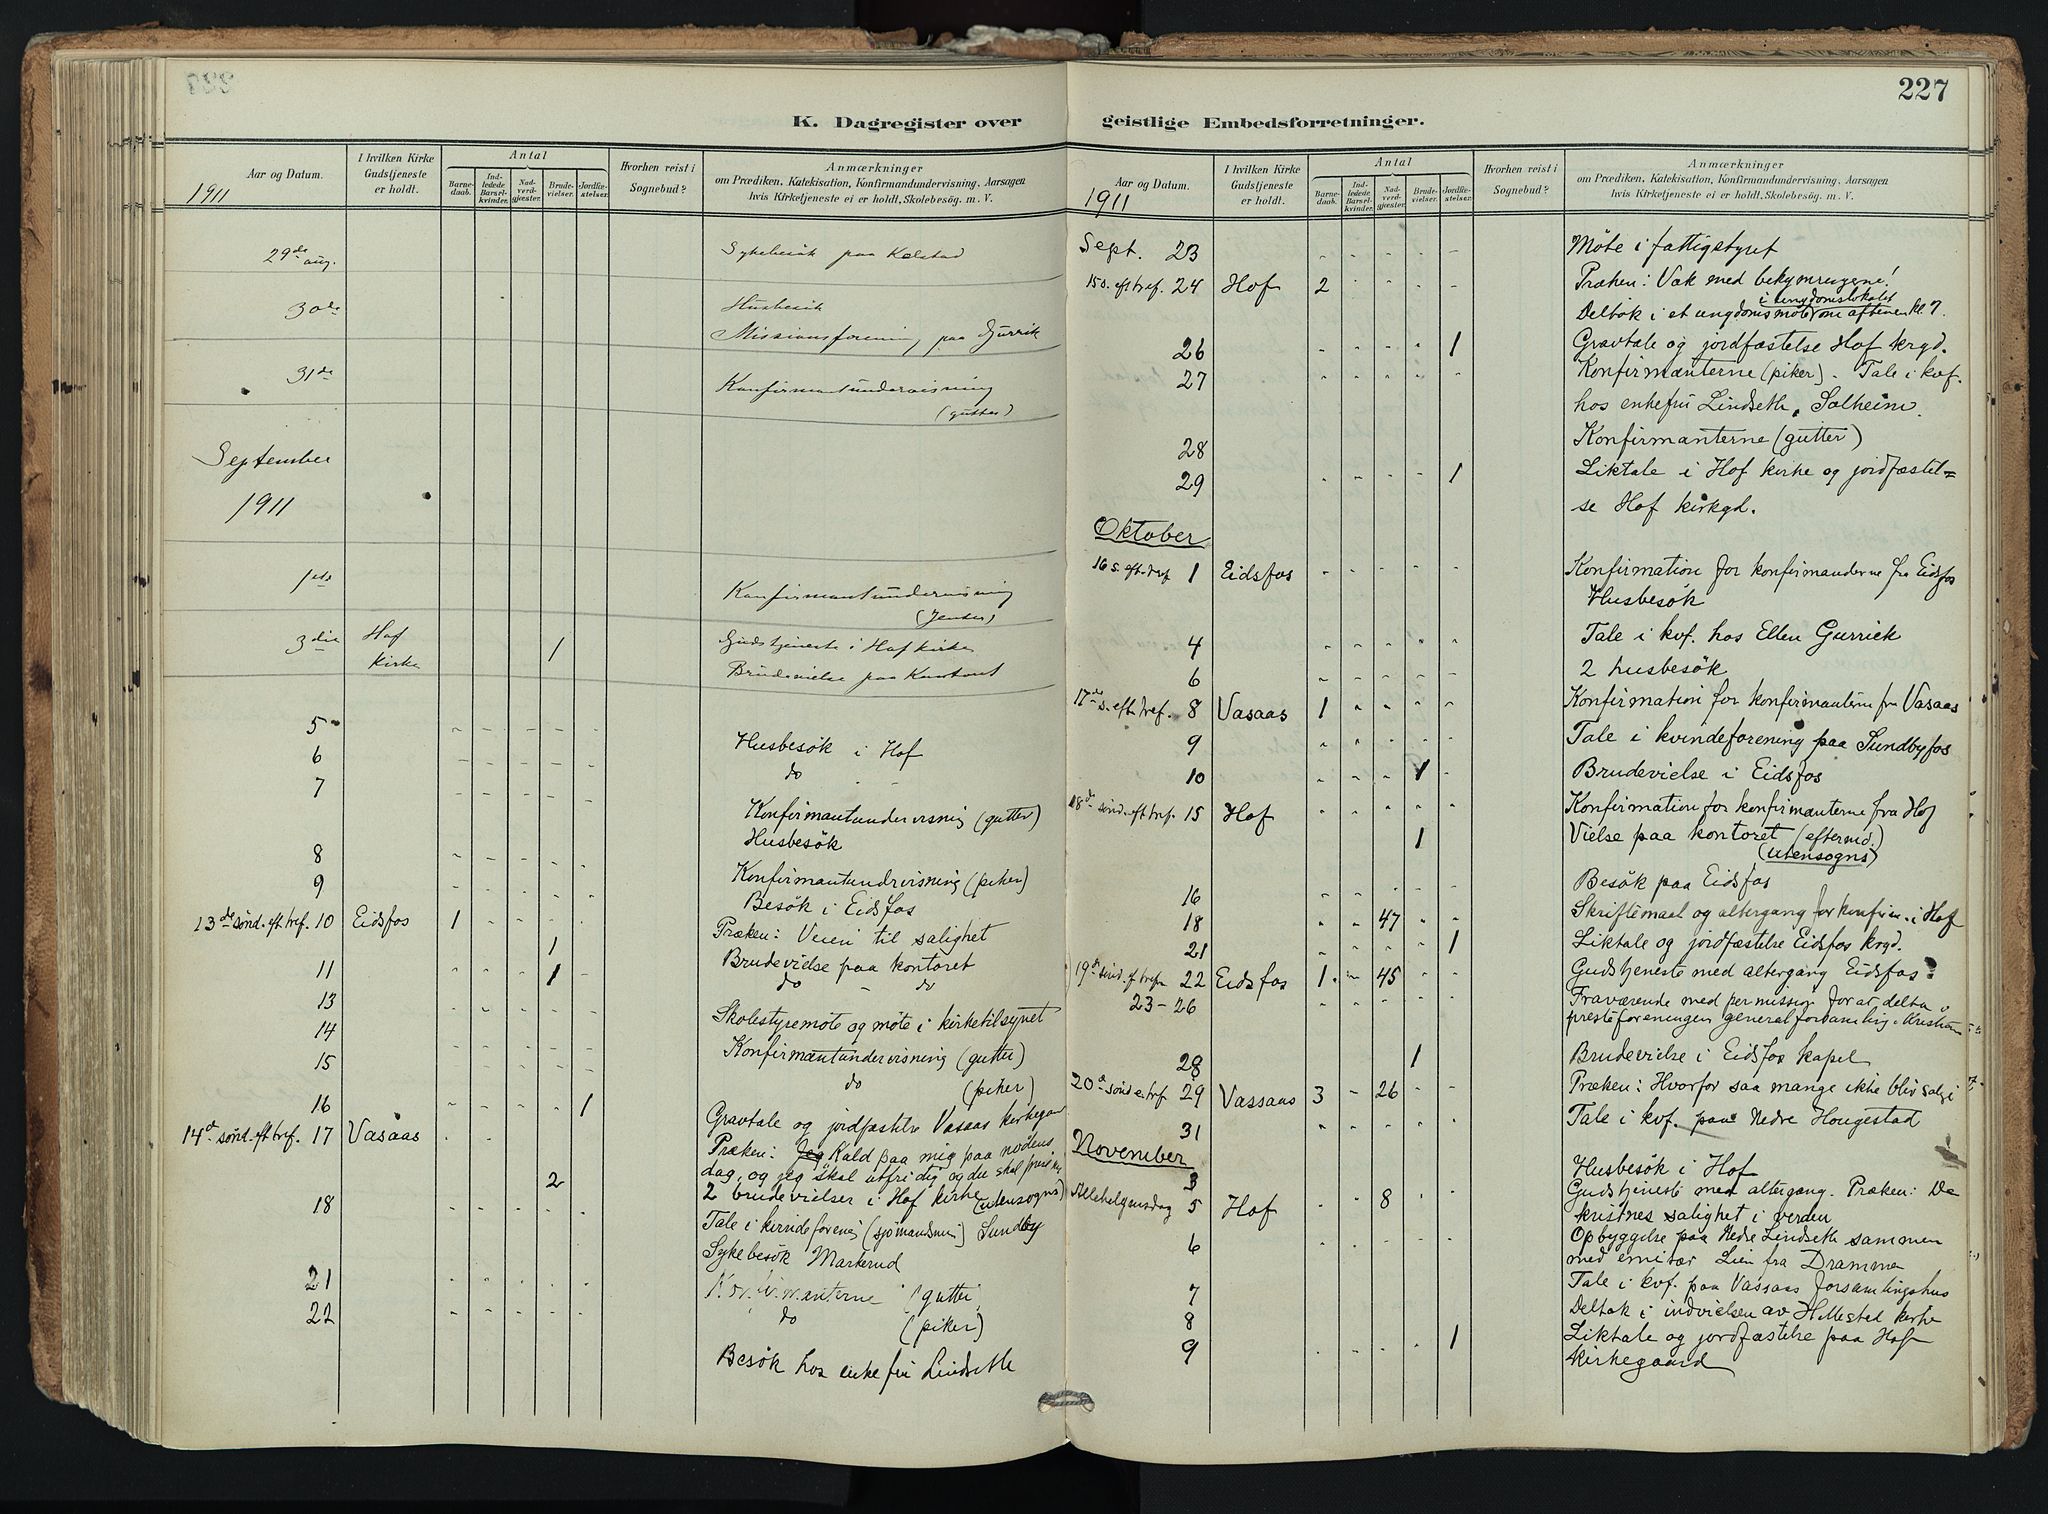 227
K. Dagregister over geistlige Embedsforretninger.
Aar og Datum.
I hvilken Kirke Gudstjeneste er holdt.
Antal
Barnedaab.
Indledede Barselkvinder.
Nadverdgjester.
Brudevielser.
Jordfæstelser.
Hvorhen reist i Sognebud?
Anmærkninger
om Prædiken, Katekisation, Konfirmandundervisning, Aarsagen
hvis Kirketjeneste ei er holdt, Skolebesøg. m. V.
1911
29de aug. Sykebesök paa Kolstad
30de Husbesök
Missionsforening paa Gurrik
31de Konfirmantundervisning
(gutter)
September
1911
1ste Konfirmantundervisning
(Jenter)
3die Hof Kirke 1 Gudstjeneste i Hof kirke
Brudevielse paa Kontoret
5
6 Husbesök i Hof
7 do
Konfirmantundervisning (gutter)
Husbesök
8
9 Konfirmantundervisning (piker)
Besök i Eidsfos
13de sønd. eft. tref. 10 Eidsfos 1
Præken: Veien til salighet
1 Brudevielse paa kontoret
11 1 do - do
13 Skolestyremöte og möte i kirketilsynet
14 Konfirmantundervisning (gutter)
15 do (piker)
16 1 Gravtale og jordfæstelse Vasaas kirkegaard
14d sønd. eft tref. 17 Vasaas Præken: Kald paa mig paa nödens
dag, og jeg skal utfri dig og du skal prise mig
2 2 brudevielser i Hof kirke (utensogns)
18 Tale i kvindeforening (sjömandsmis) Sundby
Sykebesök Markerud
21 Konfirmanterne (gutter)
22 do (piker)
Besök hos enkefru Lindseth
Aar og Datum.
I hvilken Kirke Gudstjeneste er holdt.
Antal
Barnedaab.
Indledede Barselkvinder.
Nadverdgjester.
Brudevielser.
Jordfæstelser.
Hvorhen reist i Sognebud?
Anmærkninger
om Prædiken, Katekisation, Konfirmandundervisning, Aarsagen
hvis Kirketjeneste ei er holdt, Skolebesøg. m. V.
1911
Sept. 23 Möte i fattigstyret
15 s. eft tref. 24 Hof 2 Præken: Væk med bekymringene!
Deltok i et ungdomsmöte i ungdomslokalet om aftenen kl 7.
26 1 Gravtale og jordfæstelse Hof krgd.
27 Konfirmanterne (piker). Tale i kvf.
hos enkefru Lindseth, Solheim.
28 Konfirmanterne (gutter)
29 1 Liktale i Hof kirke og jordfæstel=
se Hof kirkgd.
Oktober
16 s. eft. tref 1 Eidsfos Konfirmation for konfirmanderne fra Eidsfos
Husbesök
4 Tale i kvf. hos Ellen Gurrick
6 2 husbesök
17de s. eft. tref. 8 Vasaas 1 Konfirmation for konfirmanterne fra Vasaas
9 Tale i kvindeforening paa Sundbyfos
10 1 Brudevielse i Eidsfos
18de sønd. eft tref. 15 Hof Konfirmation for konfirmanterne fra Hof
1 Vielse paa kontoret (eftermd.)
(utensogns)
16 Besök paa Eidsfos
18 47 Skriftemaal og altergang for konfirm. i Hof
21 1 Liktale og jordfæstelse Eidsfos krgd.
19de sønd. ef tref 22 Eidsfos 1 45 Gudstjeneste med altergang Eidsfos
23-26 Fraværende med permission for at delta i
presteforeningen generalforsamling i Kristiania
28 1 Brudevielse i Eidsfos kapel
20d sønd e. tref 29 Vassaas 3 26 Præken: Hvorfor saa mange ikke bliv salig
31 Tale i kvf. paa Nedre Hougestad
November
3 Husbesök i Hof
Allehelgensdag 5 Hof 8 Gudstjeneste med altergang. Præken: De
kristnes salighet i verden
6 Opbyggelse paa Nedre Lindseth sammen
med emisær Lien fra Drammen
7 Tale i kvf. paa Vassaas forsamlingshus
8 Deltok i indvielsen av Hillestad kirke
9 1 Liktale og jordfæstelse paa Hof
kirkegaard